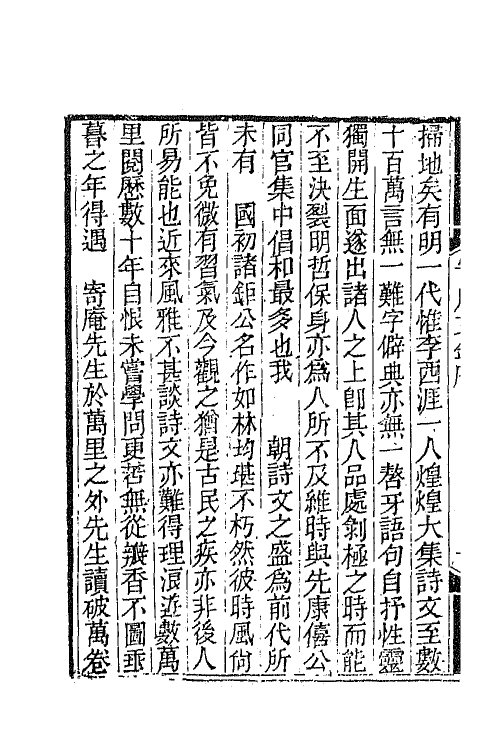 掃地矣有明一代惟李西涯一人煌煌大集詩文至數
十百萬言無一難字僻典亦無一聱牙語句自抒性靈
獨開生面遂出諸人之上卽其人品處剝極之時而能
不至決裂明哲保身亦爲人所不及維時與先康僖公
同官集中倡和最多也我　朝詩文之盛爲前代所
未有　國初諸鉅公名作如林均堪不朽然彼時風尙
皆不免微有習氣及今觀之猶是古民之疾亦非後人
所易能也近來風雅不甚談詩文亦難得理浪遊數萬
里閱歷數十年自恨未嘗學問更苦無從瓣香不圖垂
暮之年得遇　寄庵先生於萬里之外先生讀破萬卷